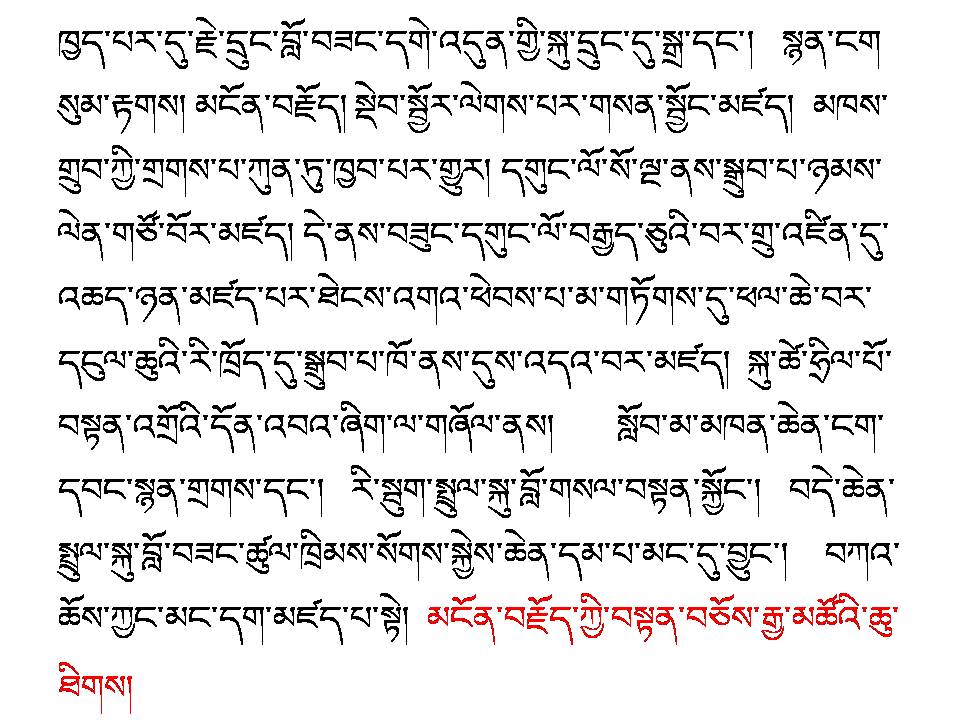 ཁྱད་པར་དུ་རྗེ་དྲུང་བློ་བཟང་དགེ་འདུན་གྱི་སྐུ་དྲུང་དུ་སྒྲ་དང་། སྙན་ངག
སུམ་རྟགས། མངོན་བརྗོད། སྡེབ་སྦྱོར་ལེགས་པར་གསན་སྦྱོང་མཛད། མཁས་
གྲུབ་ཀྱི་གྲགས་པ་ཀུན་ཏུ་ཁྱབ་པར་གྱུར། དགུང་ལོ་སོ་ལྔ་ནས་སྒྲུབ་པ་ཉམས་
ལེན་གཙོ་བོར་མཛད། དེ་ནས་བཟུང་དགུང་ལོ་བརྒྱད་ཅུའི་བར་གྲུ་འཛིན་དུ་
འཆད་ཉན་མཛད་པར་ཐེངས་འགའ་ཕེབས་པ་མ་གཏོགས་དུ་ཕལ་ཆེ་བར་
དངུལ་ཆུའི་རི་ཁྲོད་དུ་སྒྲུབ་པ་ཁོ་ནས་དུས་འདའ་བར་མཛད། སྐུ་ཚེ་ཧྲིལ་པོ་
བསྟན་འགྲོའི་དོན་འབའ་ཞིག་ལ་གཞོལ་ནས། སློབ་མ་མཁན་ཆེན་ངག་
དབང་སྙན་གྲགས་དང་། རི་སྦུག་སྤྲུལ་སྐུ་བློ་གསལ་བསྟན་སྐྱོང་། བདེ་ཆེན་
སྤྲུལ་སྐུ་བློ་བཟང་ཚུལ་ཁྲིམས་སོགས་སྐྱེས་ཆེན་དམ་པ་མང་དུ་བྱུང་། བཀའ་
ཆོས་ཀྱང་མང་དག་མཛད་པ་སྟེ། མངོན་བརྗོད་ཀྱི་བསྟན་བཅོས་རྒྱ་མཚོའི་ཆུ་
ཐིགས།